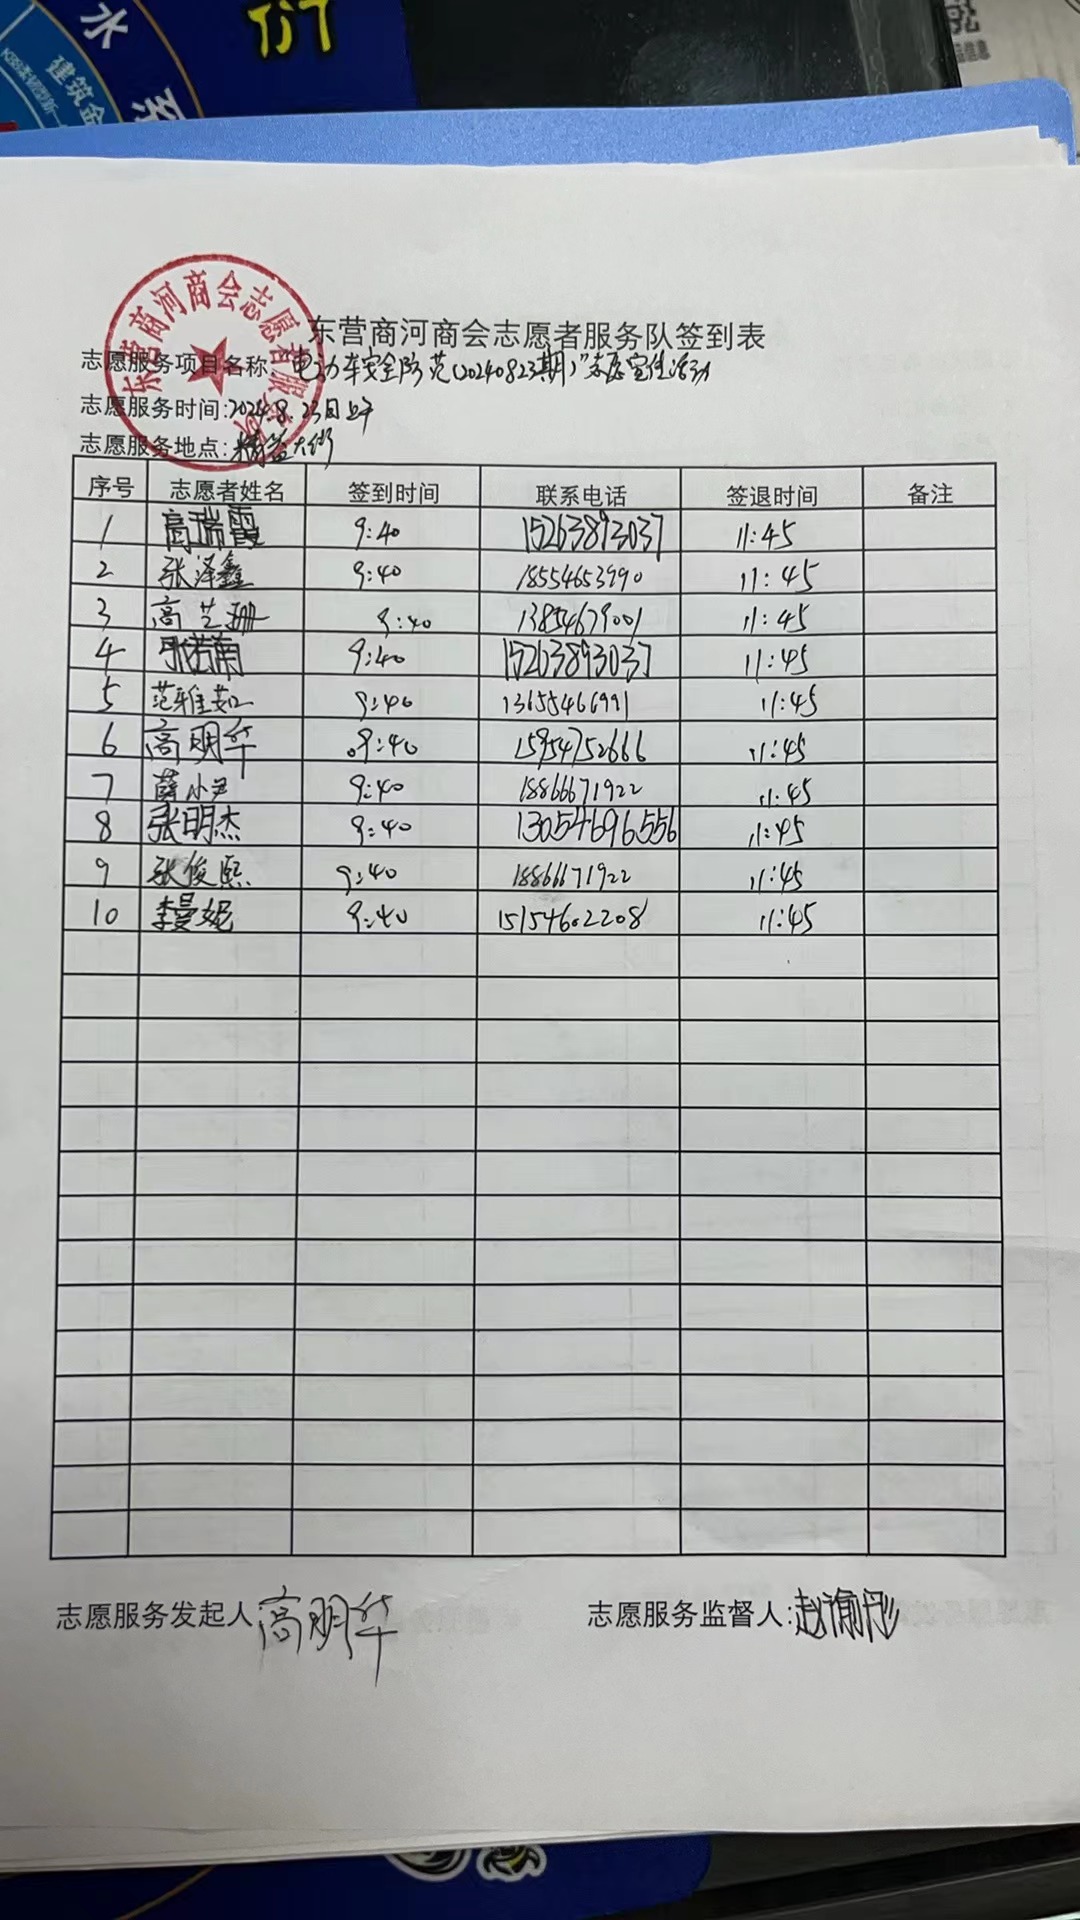 水 系
建筑金
东营商河商会志愿者服务队
东营商河商会志愿者服务队签到表
志愿服务项目名称:电动车安全防范(20240823期)"志愿宣传活动
志愿服务时间:2024.8.23日上午
志愿服务地点:精益大街
序号 志愿者姓名 签到时间 联系电话 签退时间 备注
1 高瑞霞 9:40 15263893037 11:45
2 张泽鑫 9:40 18554653990 11:45
3 高艺珊 9:40 13854679001 11:45
4 张若南 9:40 15263893037 11:45
5 范雅茹 9:40 13655466991 11:45
6 高明华 9:40 15954752666 11:45
7 薛小尹 9:40 18866671922 11:45
8 张明杰 9:40 13054696556 11:45
9 张俊熙 9:40 18866671922 11:45
10 李曼妮 9:40 15154602208 11:45
志愿服务发起人:高明华 志愿服务监督人:赵